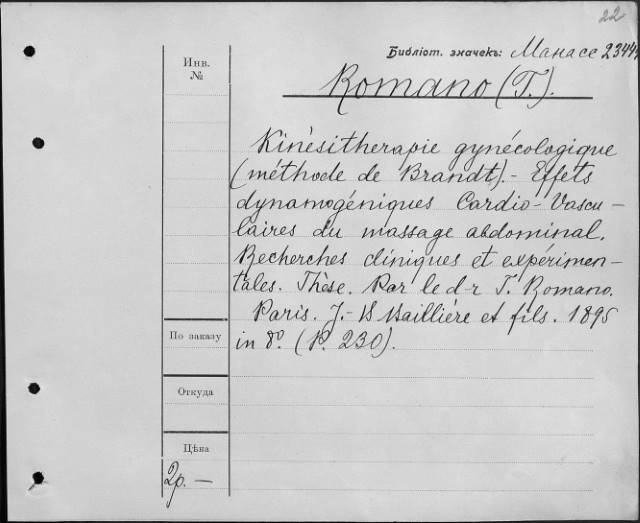 22
Библіот. значекъ: Манассе 2344
Инв.
№
Romano (T.).
Kinèsitherapie gynécologique
(méthode de Brandt).- Effets
dynamogéniques Cardio-Vascu-
laires du massage abdominal.
Recherches cliniques et expérimen-
tales. Thèse. Par le d-r T. Romano.
Paris. J.-B Bailliére et fils. 1895
По заказу
in 8º. (P. 230).
Откуда
Цѣна
2р. —